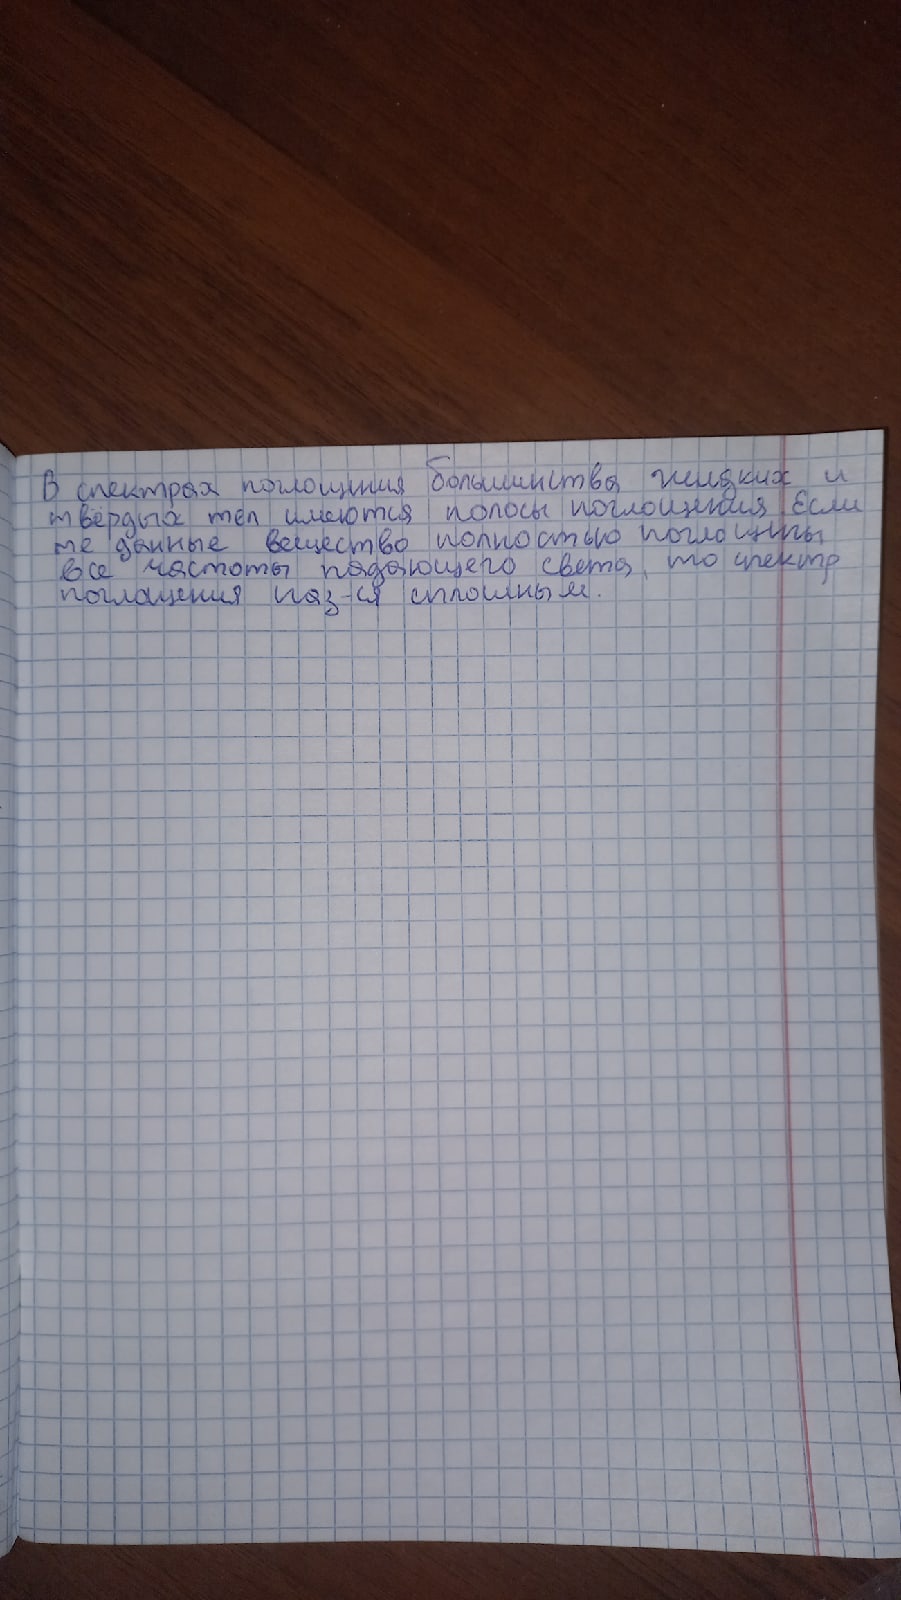 В спектрах поглощения большинства жидких и
твёрдых тел имеются полосы поглощения Если
те данные вещество полностью поглощны
все частоты падающего света, то спектр
поглощения наз-ся сплошным.